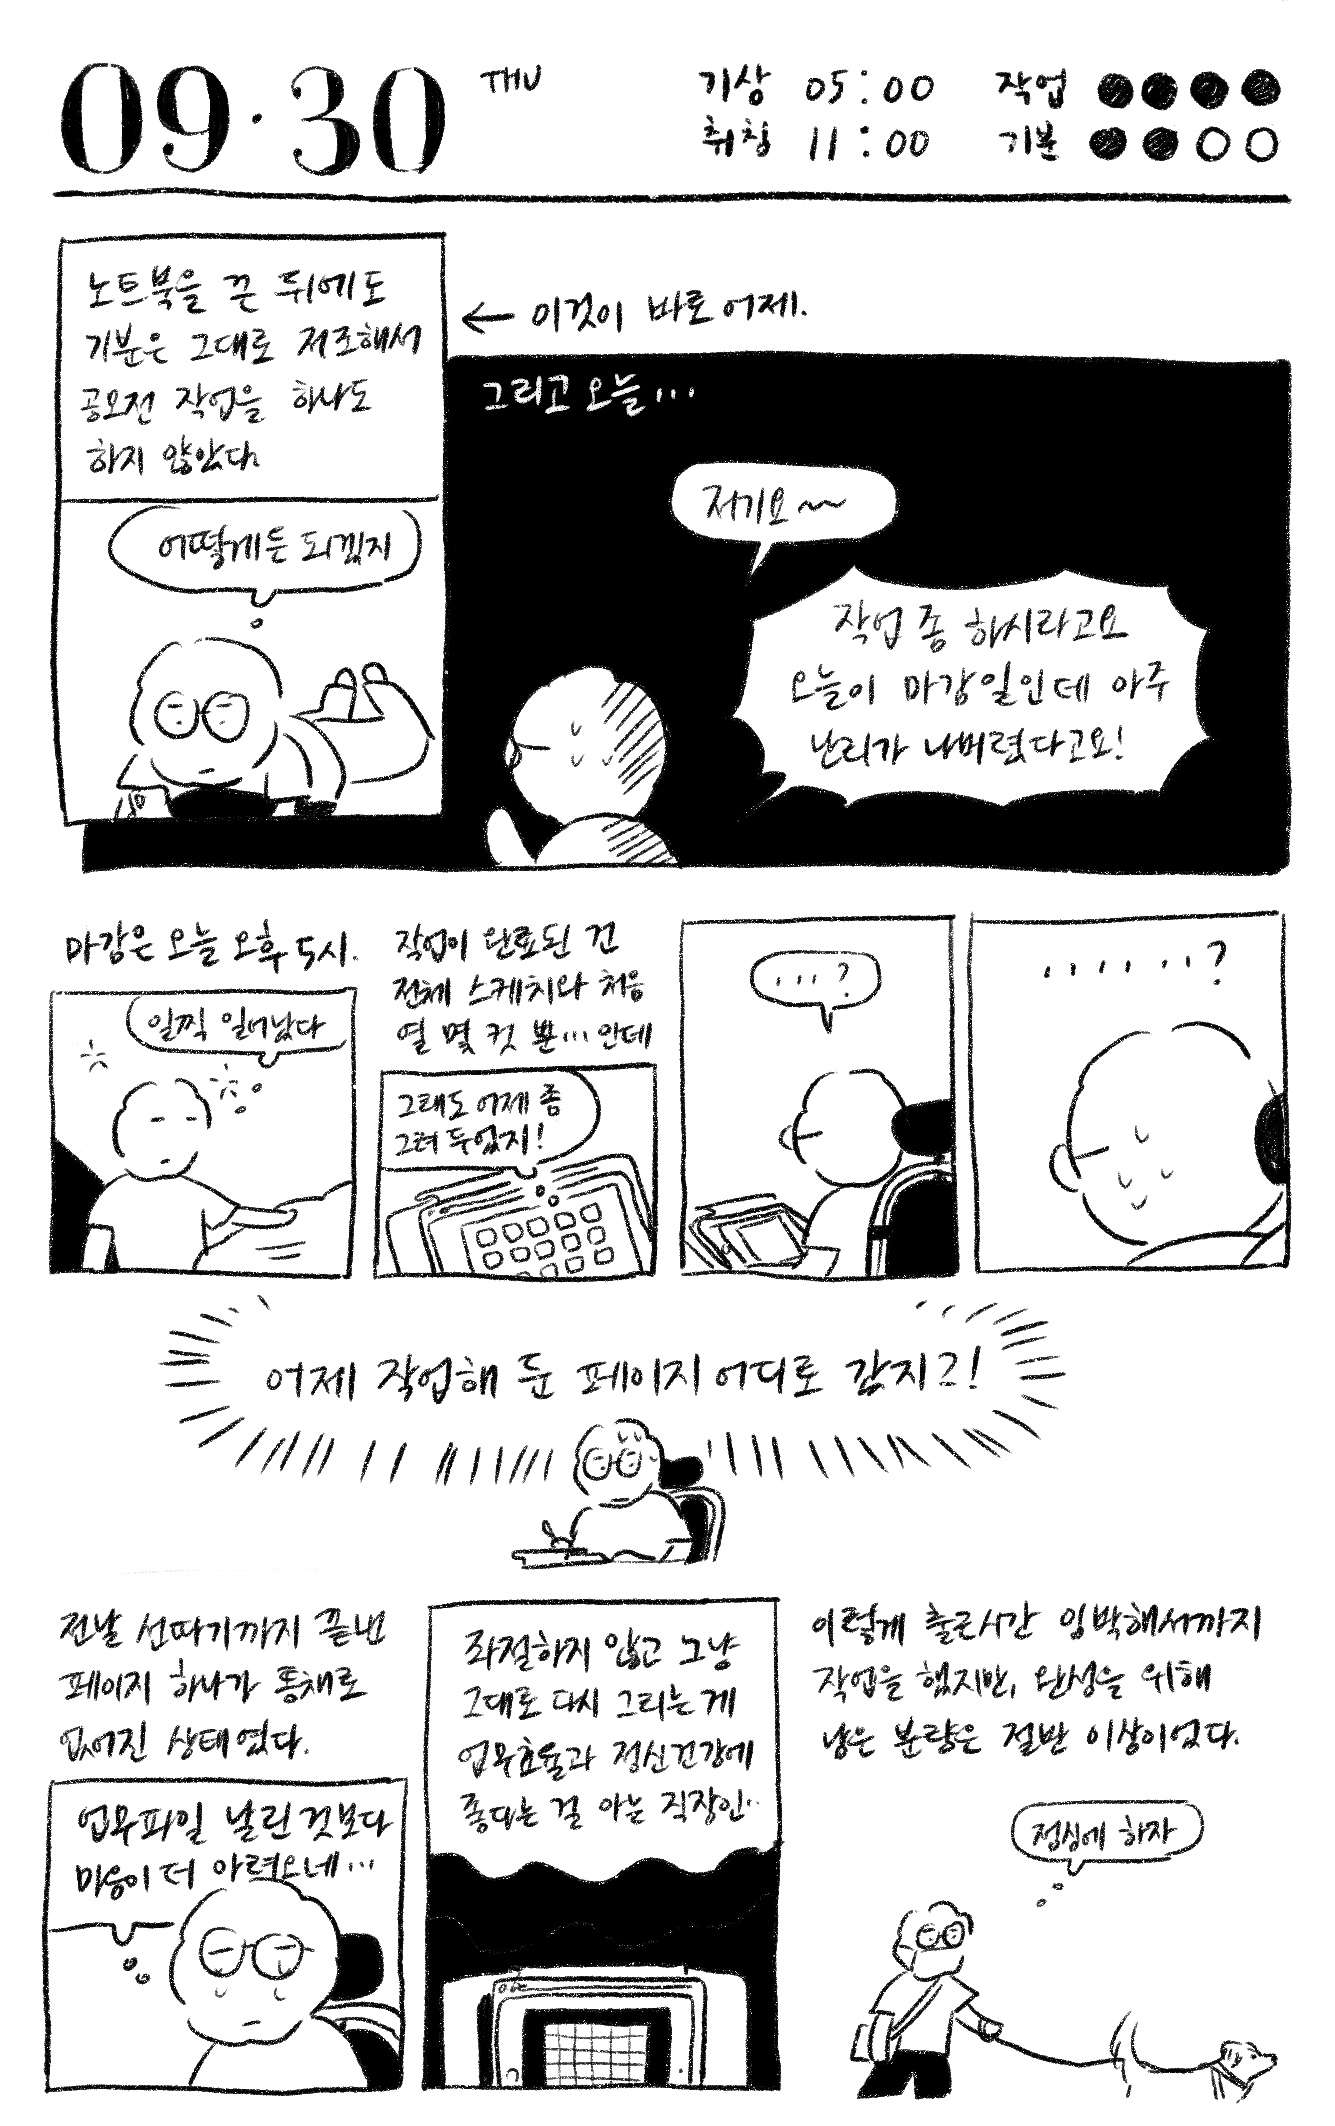 09·30 THU
기상 05:00
취침 11:00
작업
기분
노트북을 끈 뒤에도
기분은 그대로 저조해서
공모전 작업을 하나도
하지 않았다.
← 이것이 바로 어제.
어떻게든 되겠지
그리고 오늘...
저기요~~
작업 좀 하시라고요
오늘이 마감일인데 아주
난리가 나버렸다고요!
마감은 오늘 오후 5시.
일찍 일어났다
작업이 완료된 건
전체 스케치와 처음
열 몇 컷 뿐...인데
그래도 어제 좀
그려 두었지!
...?
......?
어제 작업해 둔 페이지 어디로 갔지?!
전날 선따기까지 끝낸
페이지 하나가 통채로
없어진 상태였다.
업무파일 날린 것보다
마음이 더 아려오네...
좌절하지 않고 그냥
그대로 다시 그리는 게
업무효율과 정신건강에
좋다는 걸 아는 직장인..
이렇게 출근시간 임박해서까지
작업을 했지만, 완성을 위해
남은 분량은 절반 이상이었다.
점심에 하자